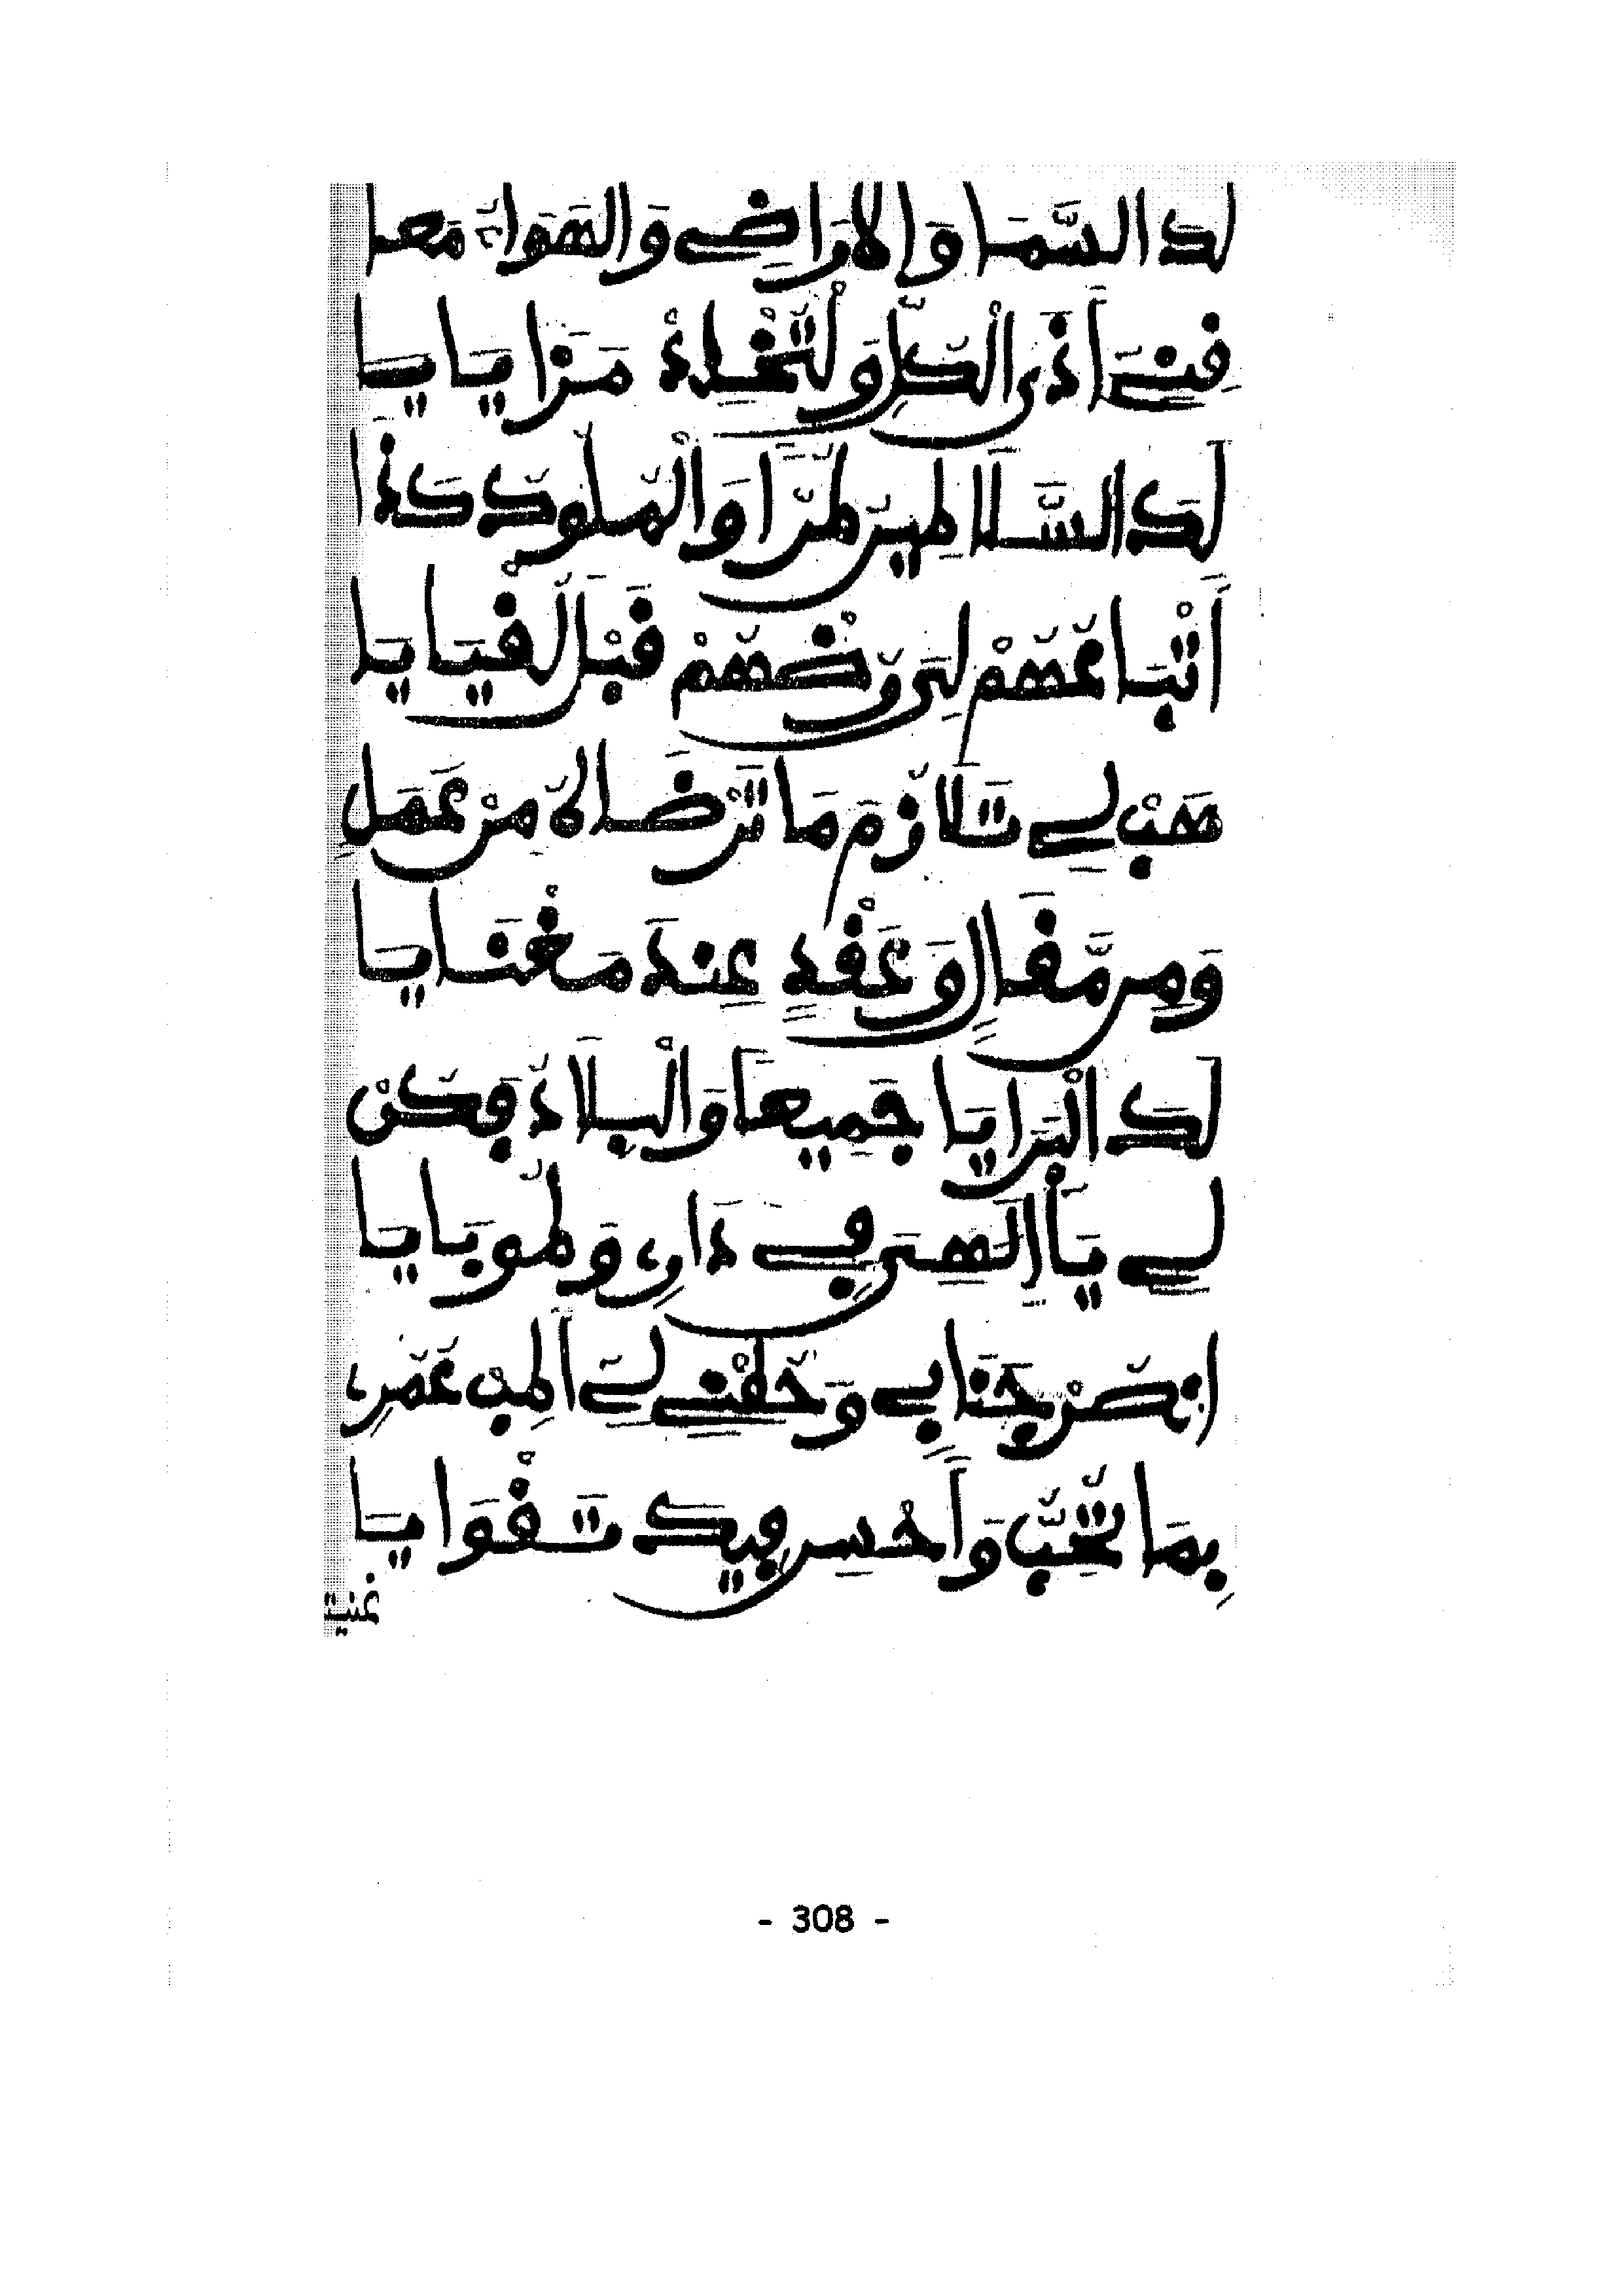 لَكَ السَّمَا وَالَارَاضِي وَالْهَوَاءُ مَعَا
فِنِي أَذَى الْكُلِّ وَلْتَخْلُدْ مَزَايَايَا
لَكَ السَّلَاطِينُ طُرًّا وَالْمُلُوكُ كَذَا
أَتْبَاعُهُمْ لِتُرَوِّضْهُمْ قَبْلُ لُقْيَايَا
هَبْ لِي تَلَازُمَ مَا تَرْضَاهُ مِنْ عَمَلٍ
وَمِن مَّقَالٍ وَعَقْدٍ عِندَ مَغْنَايَا
لَكَ الْبَرَايَا جَمِيعًا وَالْبِلَادُ فَكُنْ
لِي يَا إِلَهِيَ فِي دَارِي وَطُوبَايَا
انْصُرْ جَنَابِي وَحَقِّقْ لِي أَطِبْ عُمُرِي
بِمَا تُحِبُّ وَأَحْسِن فِيكَ تَقْوَايَا
غنيت
- 308 -